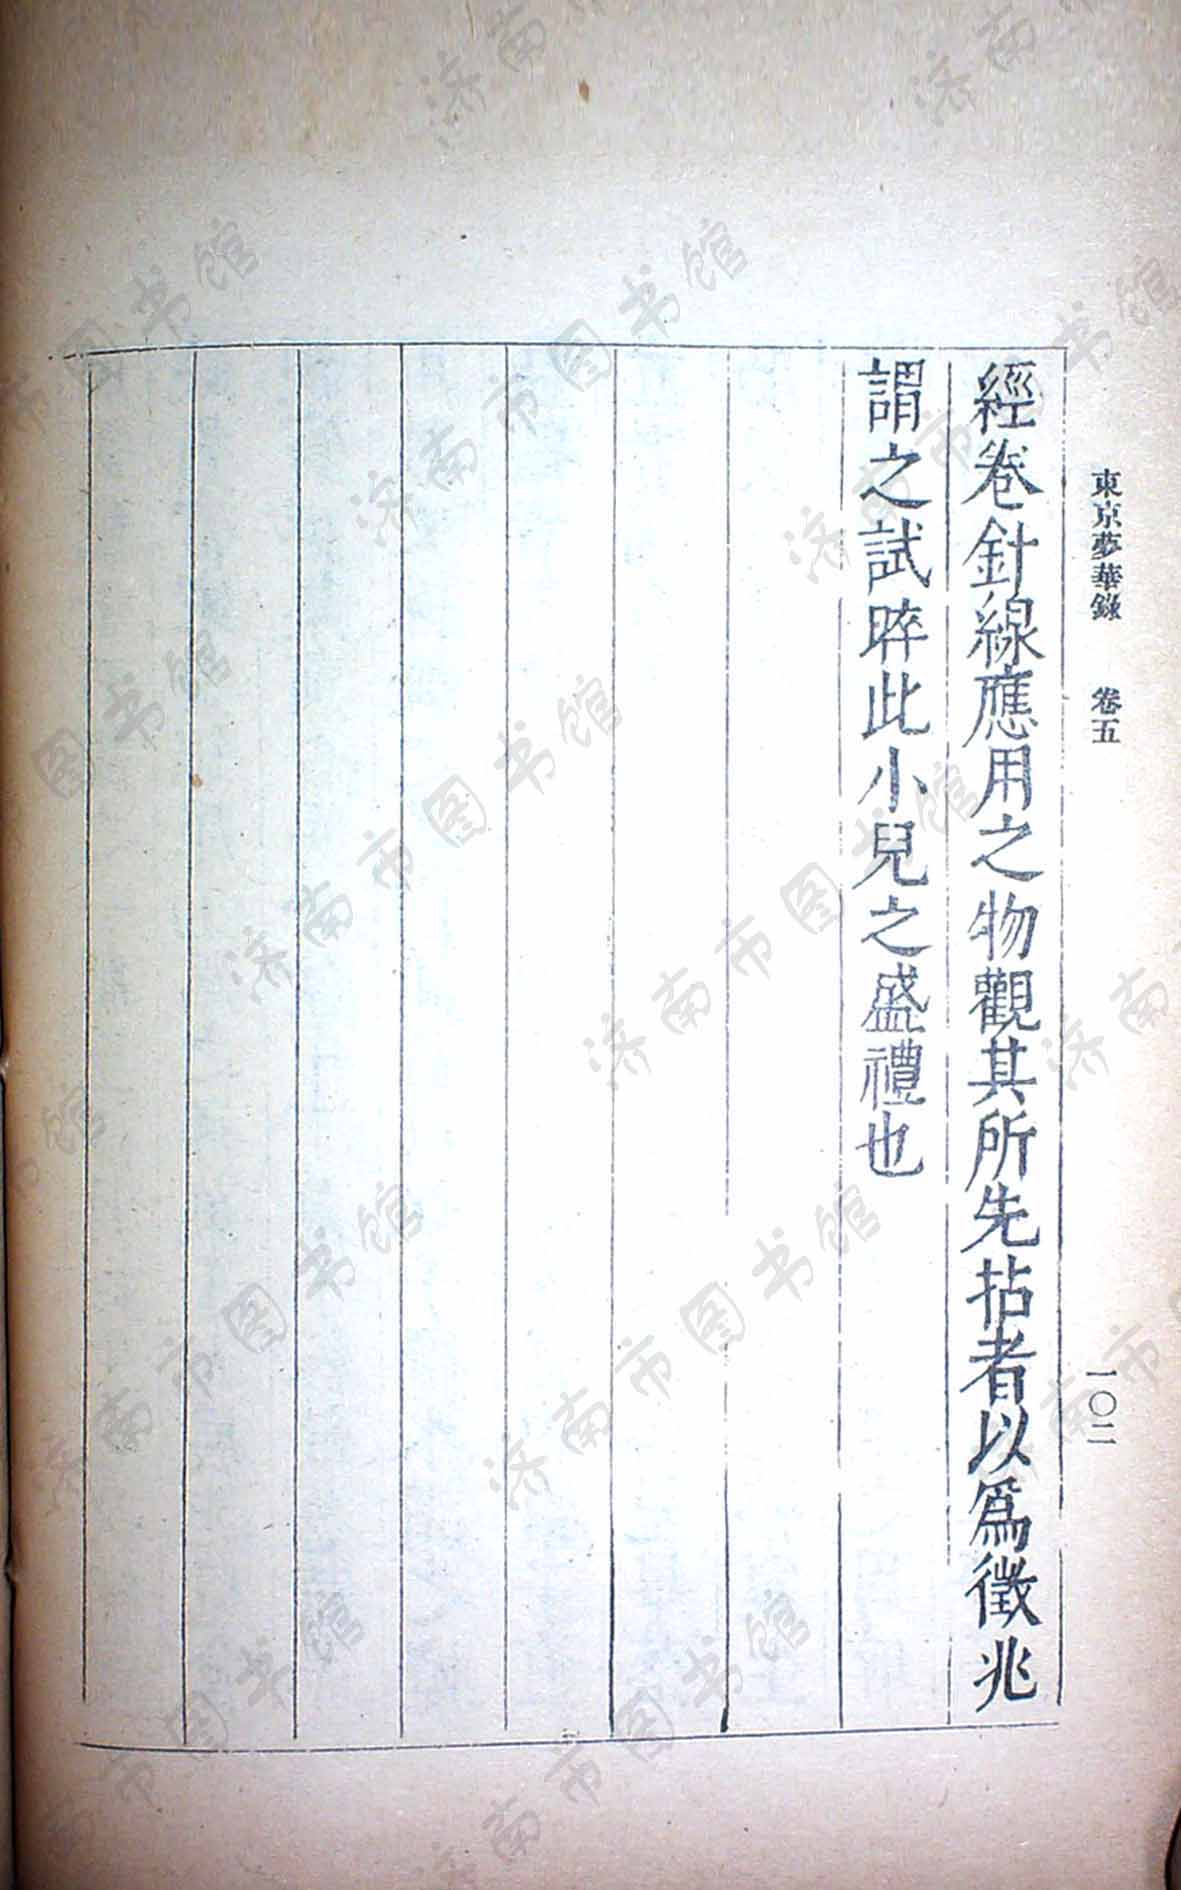 東京夢華錄 卷五 一〇二
經卷針線應用之物觀其所先拈者以爲徵兆
謂之試晬此小兒之盛禮也
济南市图书馆